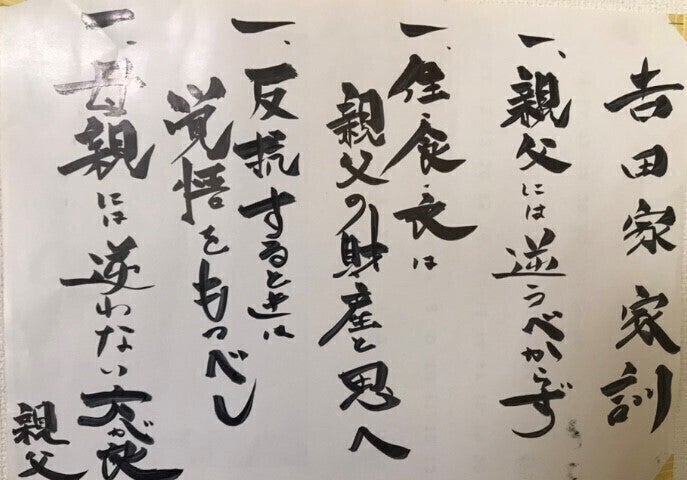 吉田家家訓
一、親父には逆らうべからず
一、住・食・衣は
親父の財産と思へ
一、反抗するときは
覚悟をもつべし
一、母親には逆わない方が良
親父